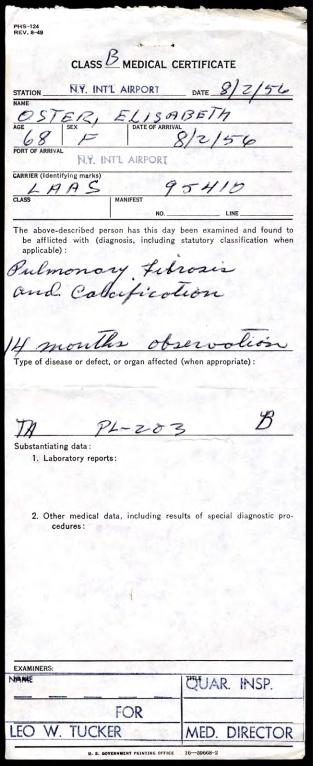 PHS-124
REV. 8-49
CLASS B MEDICAL CERTIFICATE
STATION N.Y. INT'L AIRPORT DATE 8/2/56
NAME
OSTER, ELISABETH
AGE SEX DATE OF ARRIVAL
68 F 8/2/56
PORT OF ARRIVAL
N.Y. INT'L AIRPORT
CARRIER (Identifying marks)
LAAS 95410
CLASS MANIFEST
NO. LINE
The above-described person has this day been examined and found to
be afflicted with (diagnosis, including statutory classification when
applicable):
Pulmonary Fibrosis
and Calcification
14 months observation
Type of disease or defect, or organ affected (when appropriate):
TA PL-203 B
Substantiating data:
1. Laboratory reports:
2. Other medical data, including results of special diagnostic pro-
cedures:
EXAMINERS:
NAME TITLE
QUAR. INSP.
FOR
LEO W. TUCKER MED. DIRECTOR
U. S. GOVERNMENT PRINTING OFFICE 16—59668-2